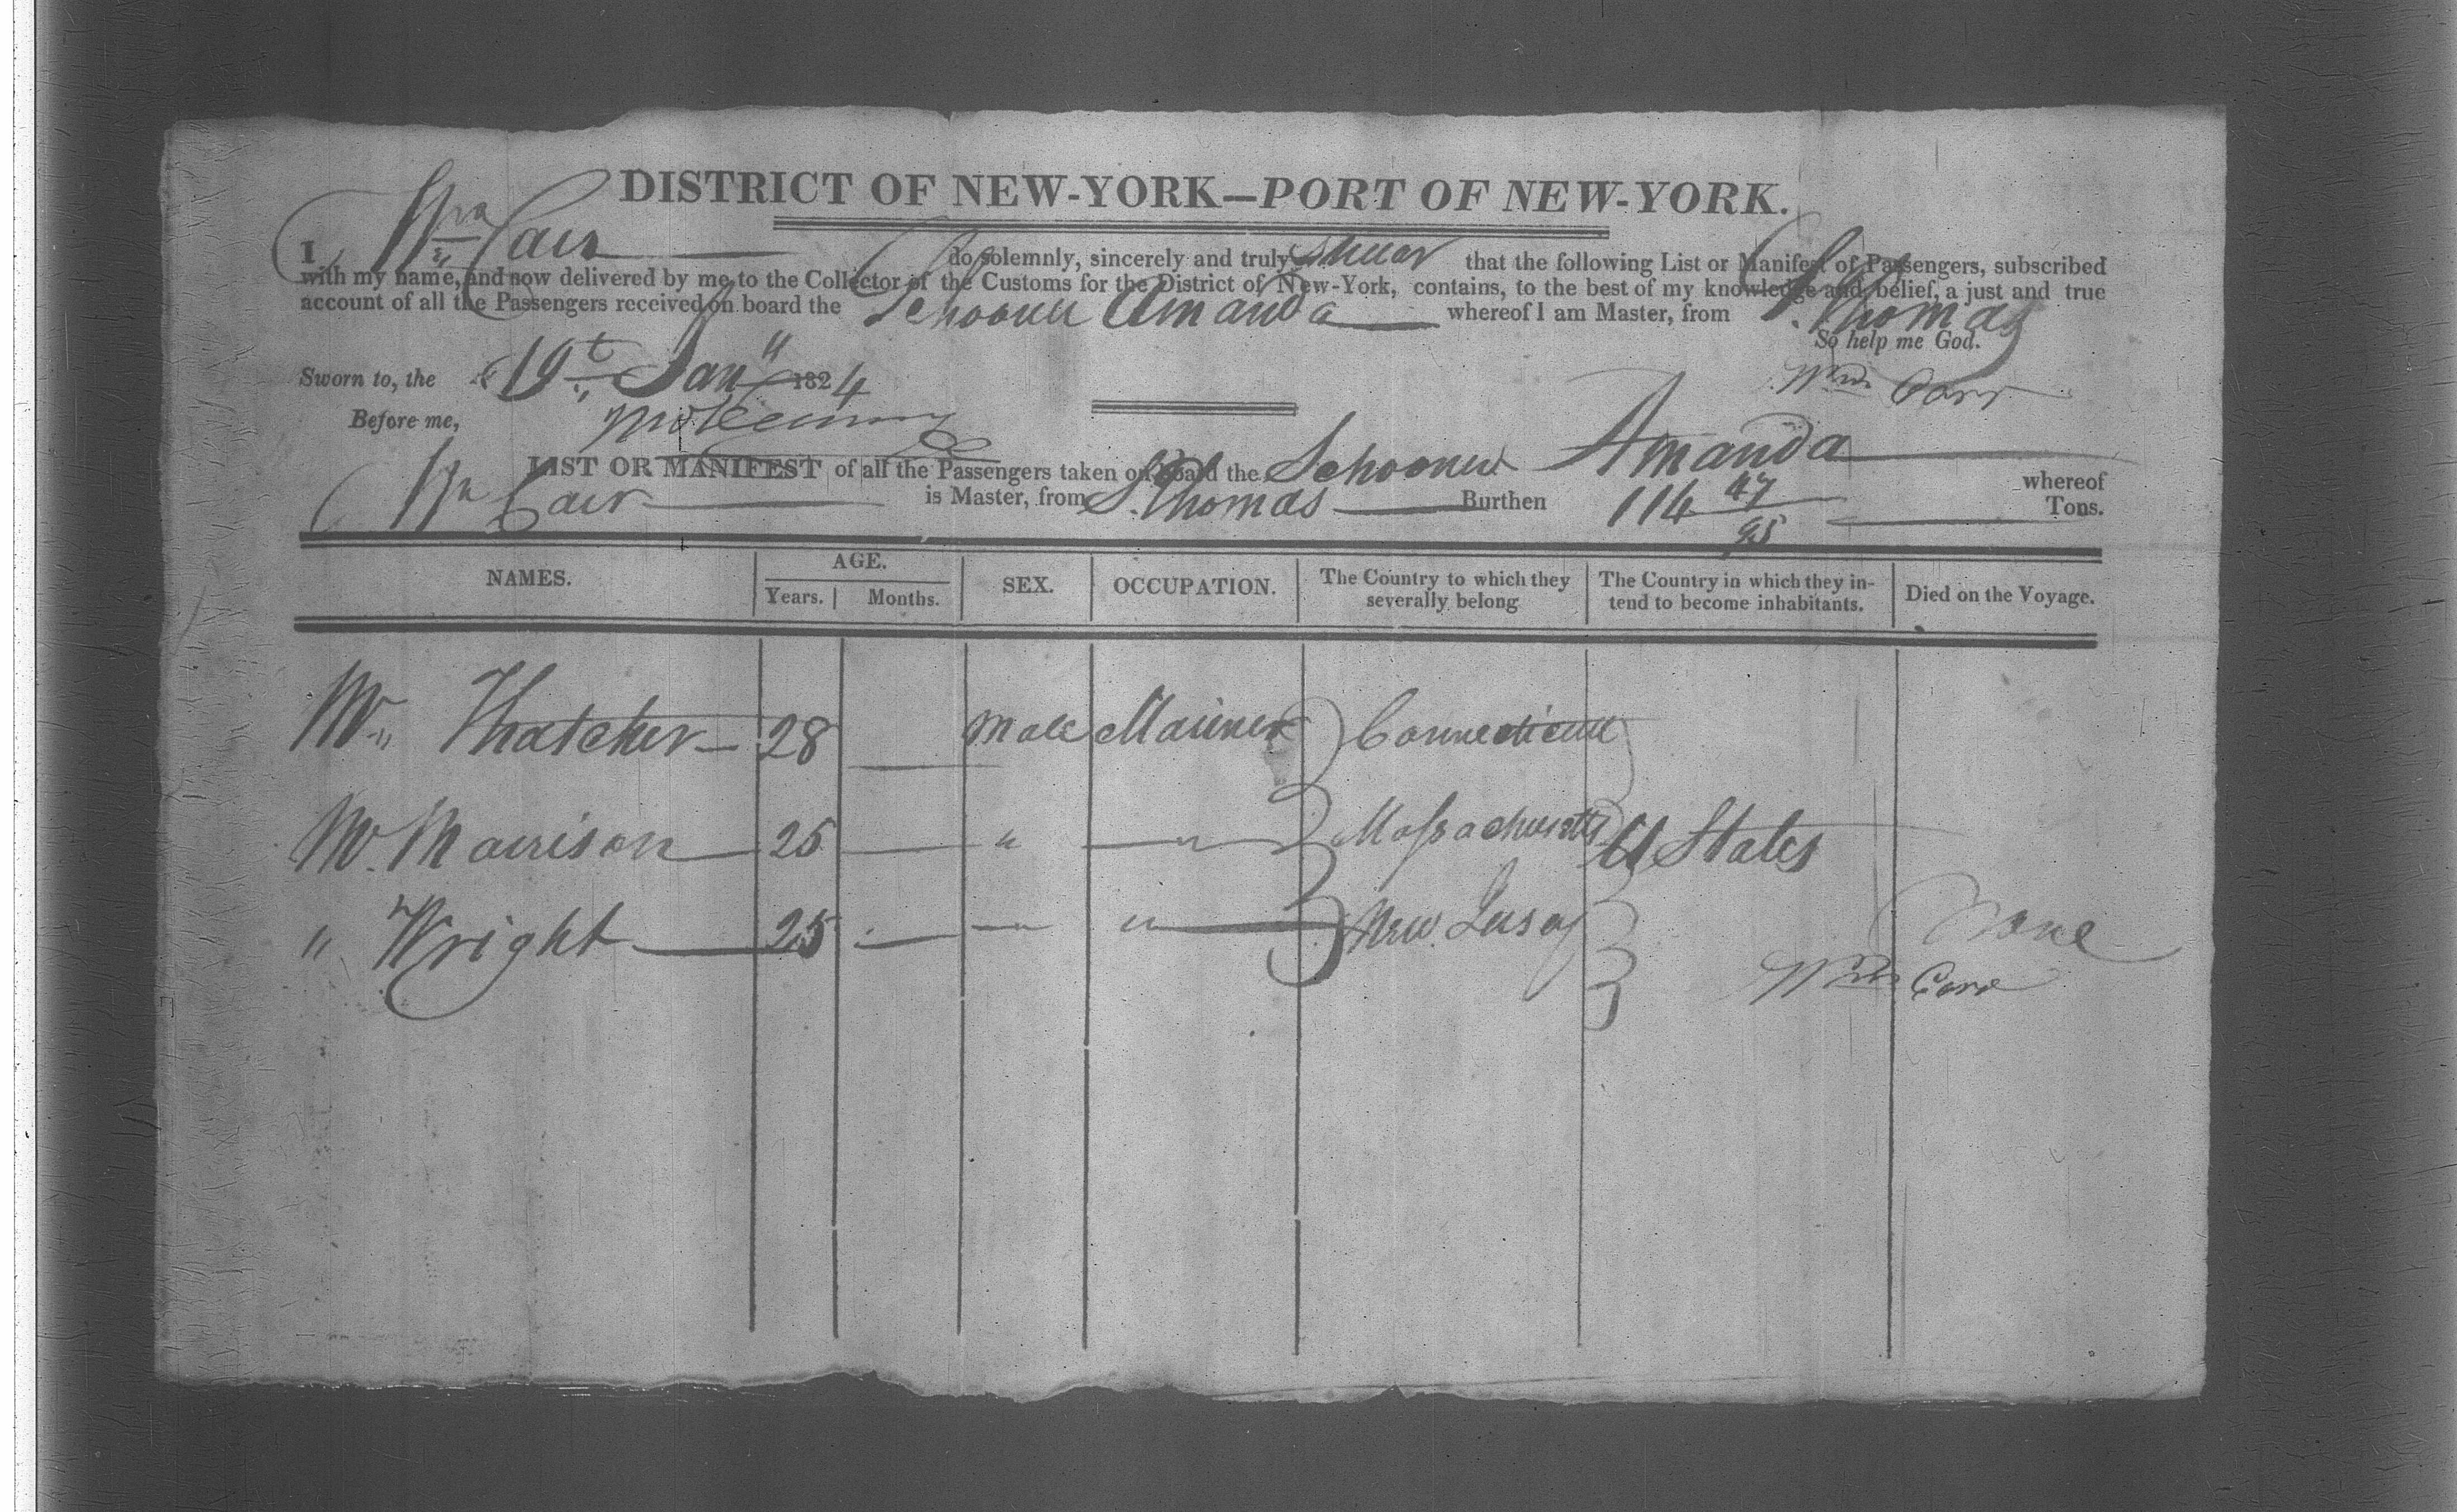 DISTRICT OF NEW-YORK—PORT OF NEW-YORK.
I, Wm Carr do solemnly, sincerely and truly swear that the following List or Manifest of Passengers, subscribed
with my name, and now delivered by me to the Collector of the Customs for the District of New-York, contains, to the best of my knowledge and belief, a just and true
account of all the Passengers received on board the Schooner Amanda whereof I am Master, from St. Thomas
So help me God.
Sworn to, the 19th Jany 1824
Wm Carr
Before me,
LIST OR MANIFEST of all the Passengers taken on board the Schooner Amanda whereof
Wm Carr is Master, from St. Thomas Burthen 114 47/95 Tons.
NAMES. AGE. Years. Months. SEX. OCCUPATION. The Country to which they severally belong The Country in which they intend to become inhabitants. Died on the Voyage.
Mr. Thatcher 28 Male Mariner Connecticut
Mr. Morrison 25 " " Massachusetts U States
" Wright 25 " " New Jersey None
Wm Carr